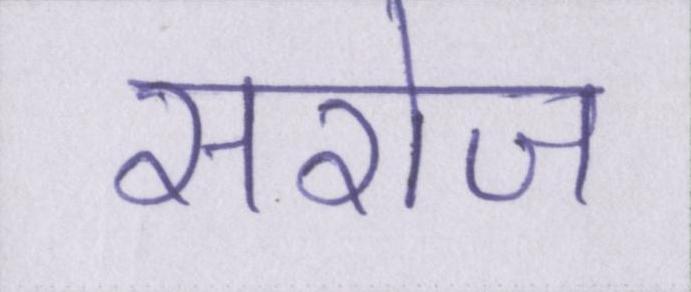 सरोज